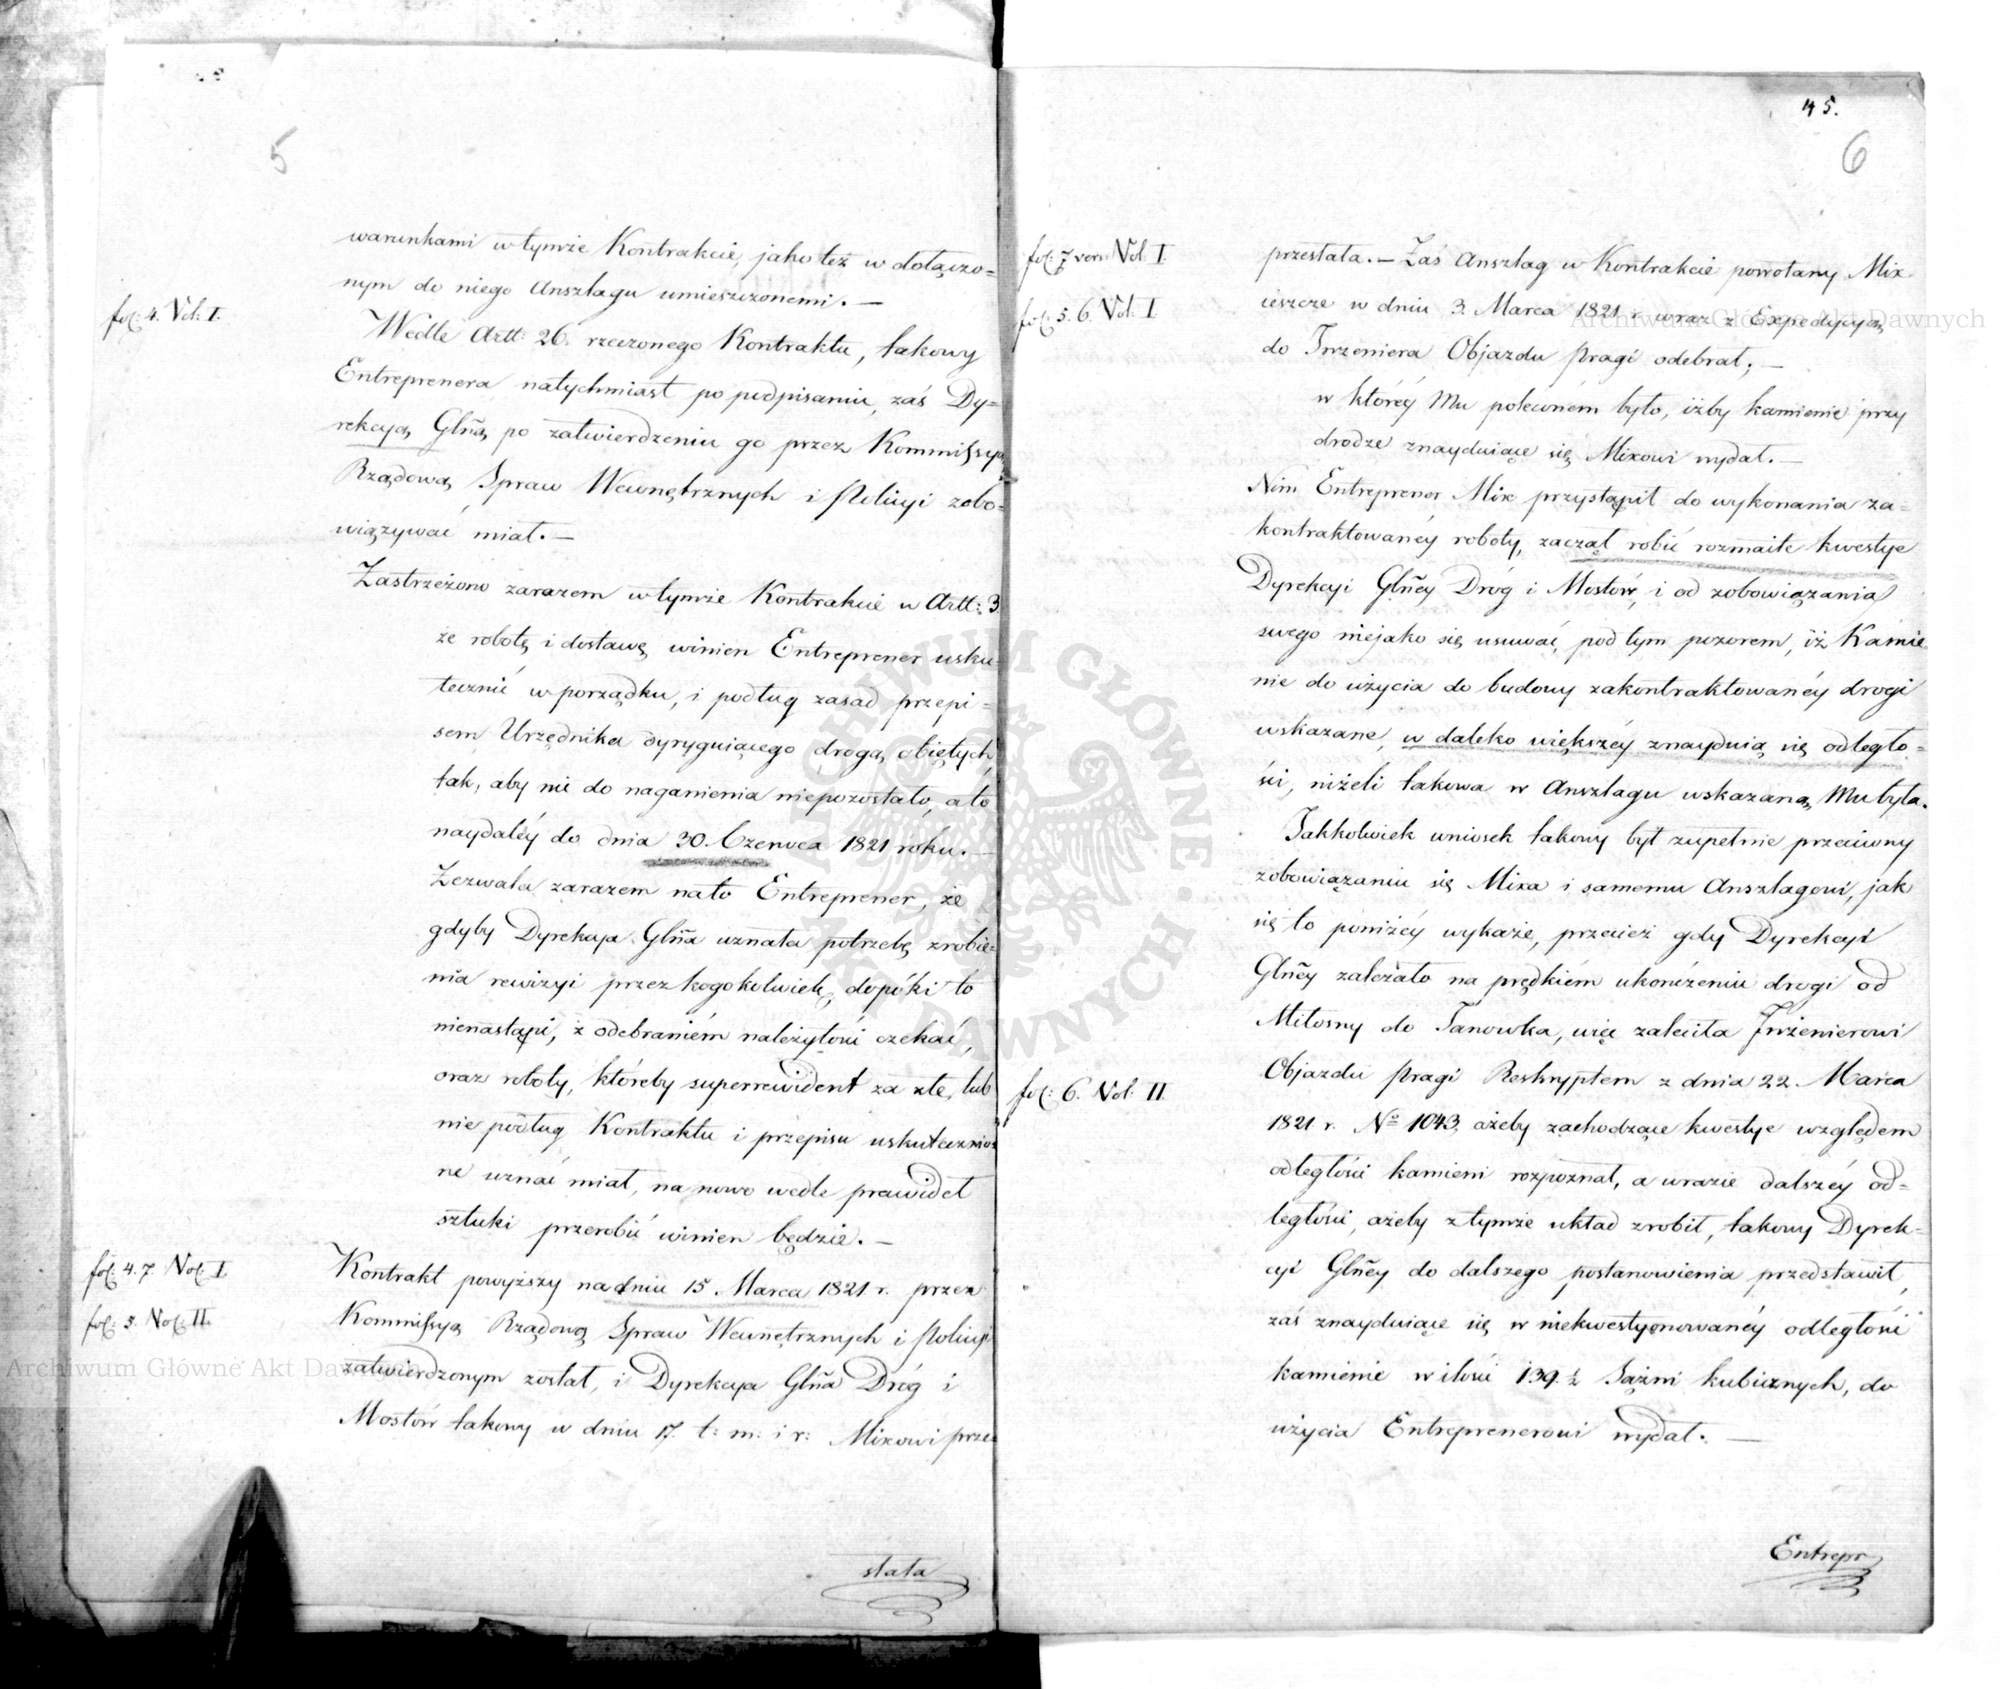 5
warunkami w tymże Kontrakcie, jako też w dołączo=
nym do niego Anszlagu umieszczonemi. —
fol: 4. Vol: I.
Wedle Artt: 26. rzeczonego Kontraktu, takowy
Entreprenera natychmiast po podpisaniu, zaś Dy=
rekcyą Glną po zatwierdzeniu go przez Kommissyą
Rządową Spraw Wewnętrznych i Policyi zobo=
wiązywać miał. —
Zastrzeżono zarazem w tymże Kontrakcie w Artt: 3
że robotę i dostawę winien Entreprener usku=
tecznić w porządku, i podług zasad przepi=
sem Urzędnika dyryguiącego drogą obiętych
tak, aby nic do naganienia niepozostało, a to
naydaléy do dnia 30. Czerwca 1821 roku. —
Zezwala zarazem na to Entreprener, że
gdyby Dyrekcya Glna uznała potrzebę zrobie=
nia rewizyi przez kogokolwiek, dopóki to
nienastąpi, z odebraniém należytości czekać,
oraz roboty, któreby superrewident za złe, lub
nie podług Kontraktu i przepisu uskutecznio=
ne uznać miał, na nowo wedle prawideł
sztuki przerobić winien będzie. —
fol: 4. 7. Vol: I
Kontrakt powyższy na dniu 15. Marca 1821 r. przez
fol: 5. Vol: II.
Kommissyą Rządową Spraw Wewnętrznych i Policyi
zatwierdzonym został, i Dyrekcya Glna Dróg i
Mostów takowy w dniu 17. t: m: i r: Mixowi prze=
słała
45.
6
fol: 7 vers: Vol: I.
przesłała. — Zaś Anszlag w Kontrakcie powołany Mix
fol: 5. 6. Vol: I
ieszcze w dniu 3. Marca 1821 r. wraz z Expedycyą
do Inżeniera Objazdu Pragi odebrał; —
w któréy Mu poleconém było, iżby kamienie przy
drodze znayduiące się Mixowi wydał. —
Nim Entreprener Mix przystąpił do wykonania za=
kontraktowanéy roboty, zaczął robić rozmaite kwestye
Dyrekcyi Glnéy Dróg i Mostów, i od zobowiązania
swego niejako się usuwać, pod tym pozorem, iż Kamie
nie do użycia do budowy zakontraktowanéy drogi
wskazane, w daleko większéy znayduią się odległo=
ści, niżeli takowa w Anszlagu wskazaną Mu była.
Jakkolwiek wniosek takowy był zupełnie przeciwny
zobowiązaniu się Mixa i samemu Anszlagowi, jak
się to poniżéy wykaże, przecież gdy Dyrekcyi
Glnéy zależało na prędkiém ukończeniu drogi od
Miłosny do Janowka, więc zaleciła Inżenierowi
fol: 6. Vol: II.
Objazdu Pragi Reskryptem z dnia 22. Marca
1821 r. No 1043. ażeby zachodzące kwestye względem
odległości kamieni rozpoznał, a wrazie dalszéy od=
ległości, ażeby z tymże układ zrobił, takowy Dyrek=
cyi Glnéy do dalszego postanowienia przedstawił,
zaś znayduiące się w niekwestyonowanéy odległości
kamienie w ilości 139 ½ Sążni kubicznych, do
użycia Entreprenerowi wydał. —
Entrepr
Archiwum Główne Akt Dawnych
Archiwum Główne Akt Dawnych
ARCHIWUM GŁÓWNE AKT DAWNYCH